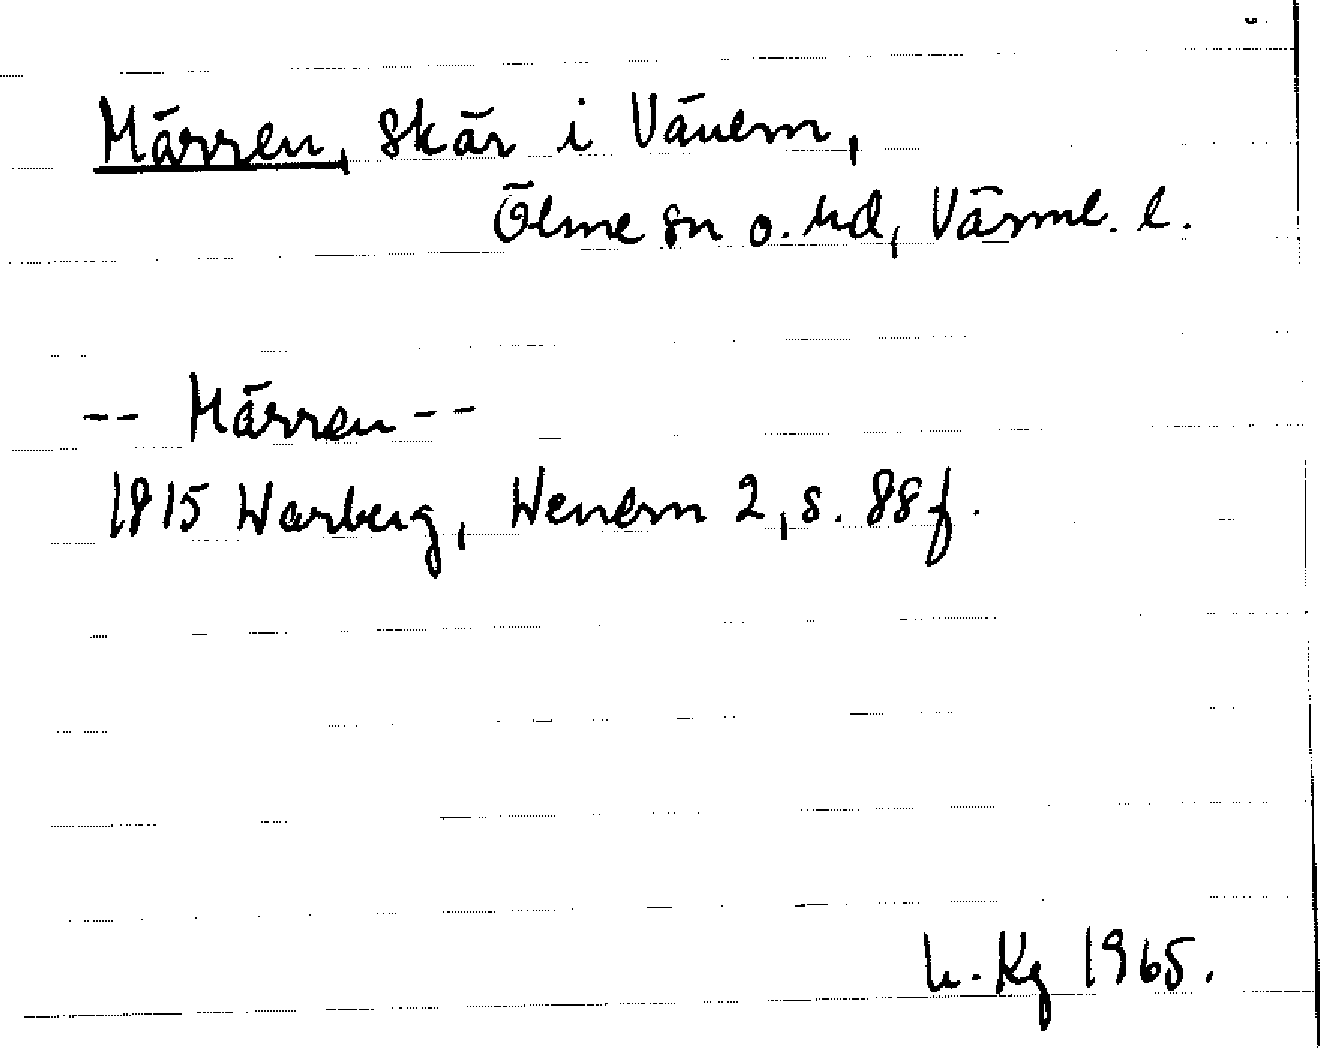 Märren, skär i Vänern,
Ölme sn o. hd, Värml. l.
-- Märren --
1815 Warberg, Wenern 2, s. 88f.
h. Kg 1965.